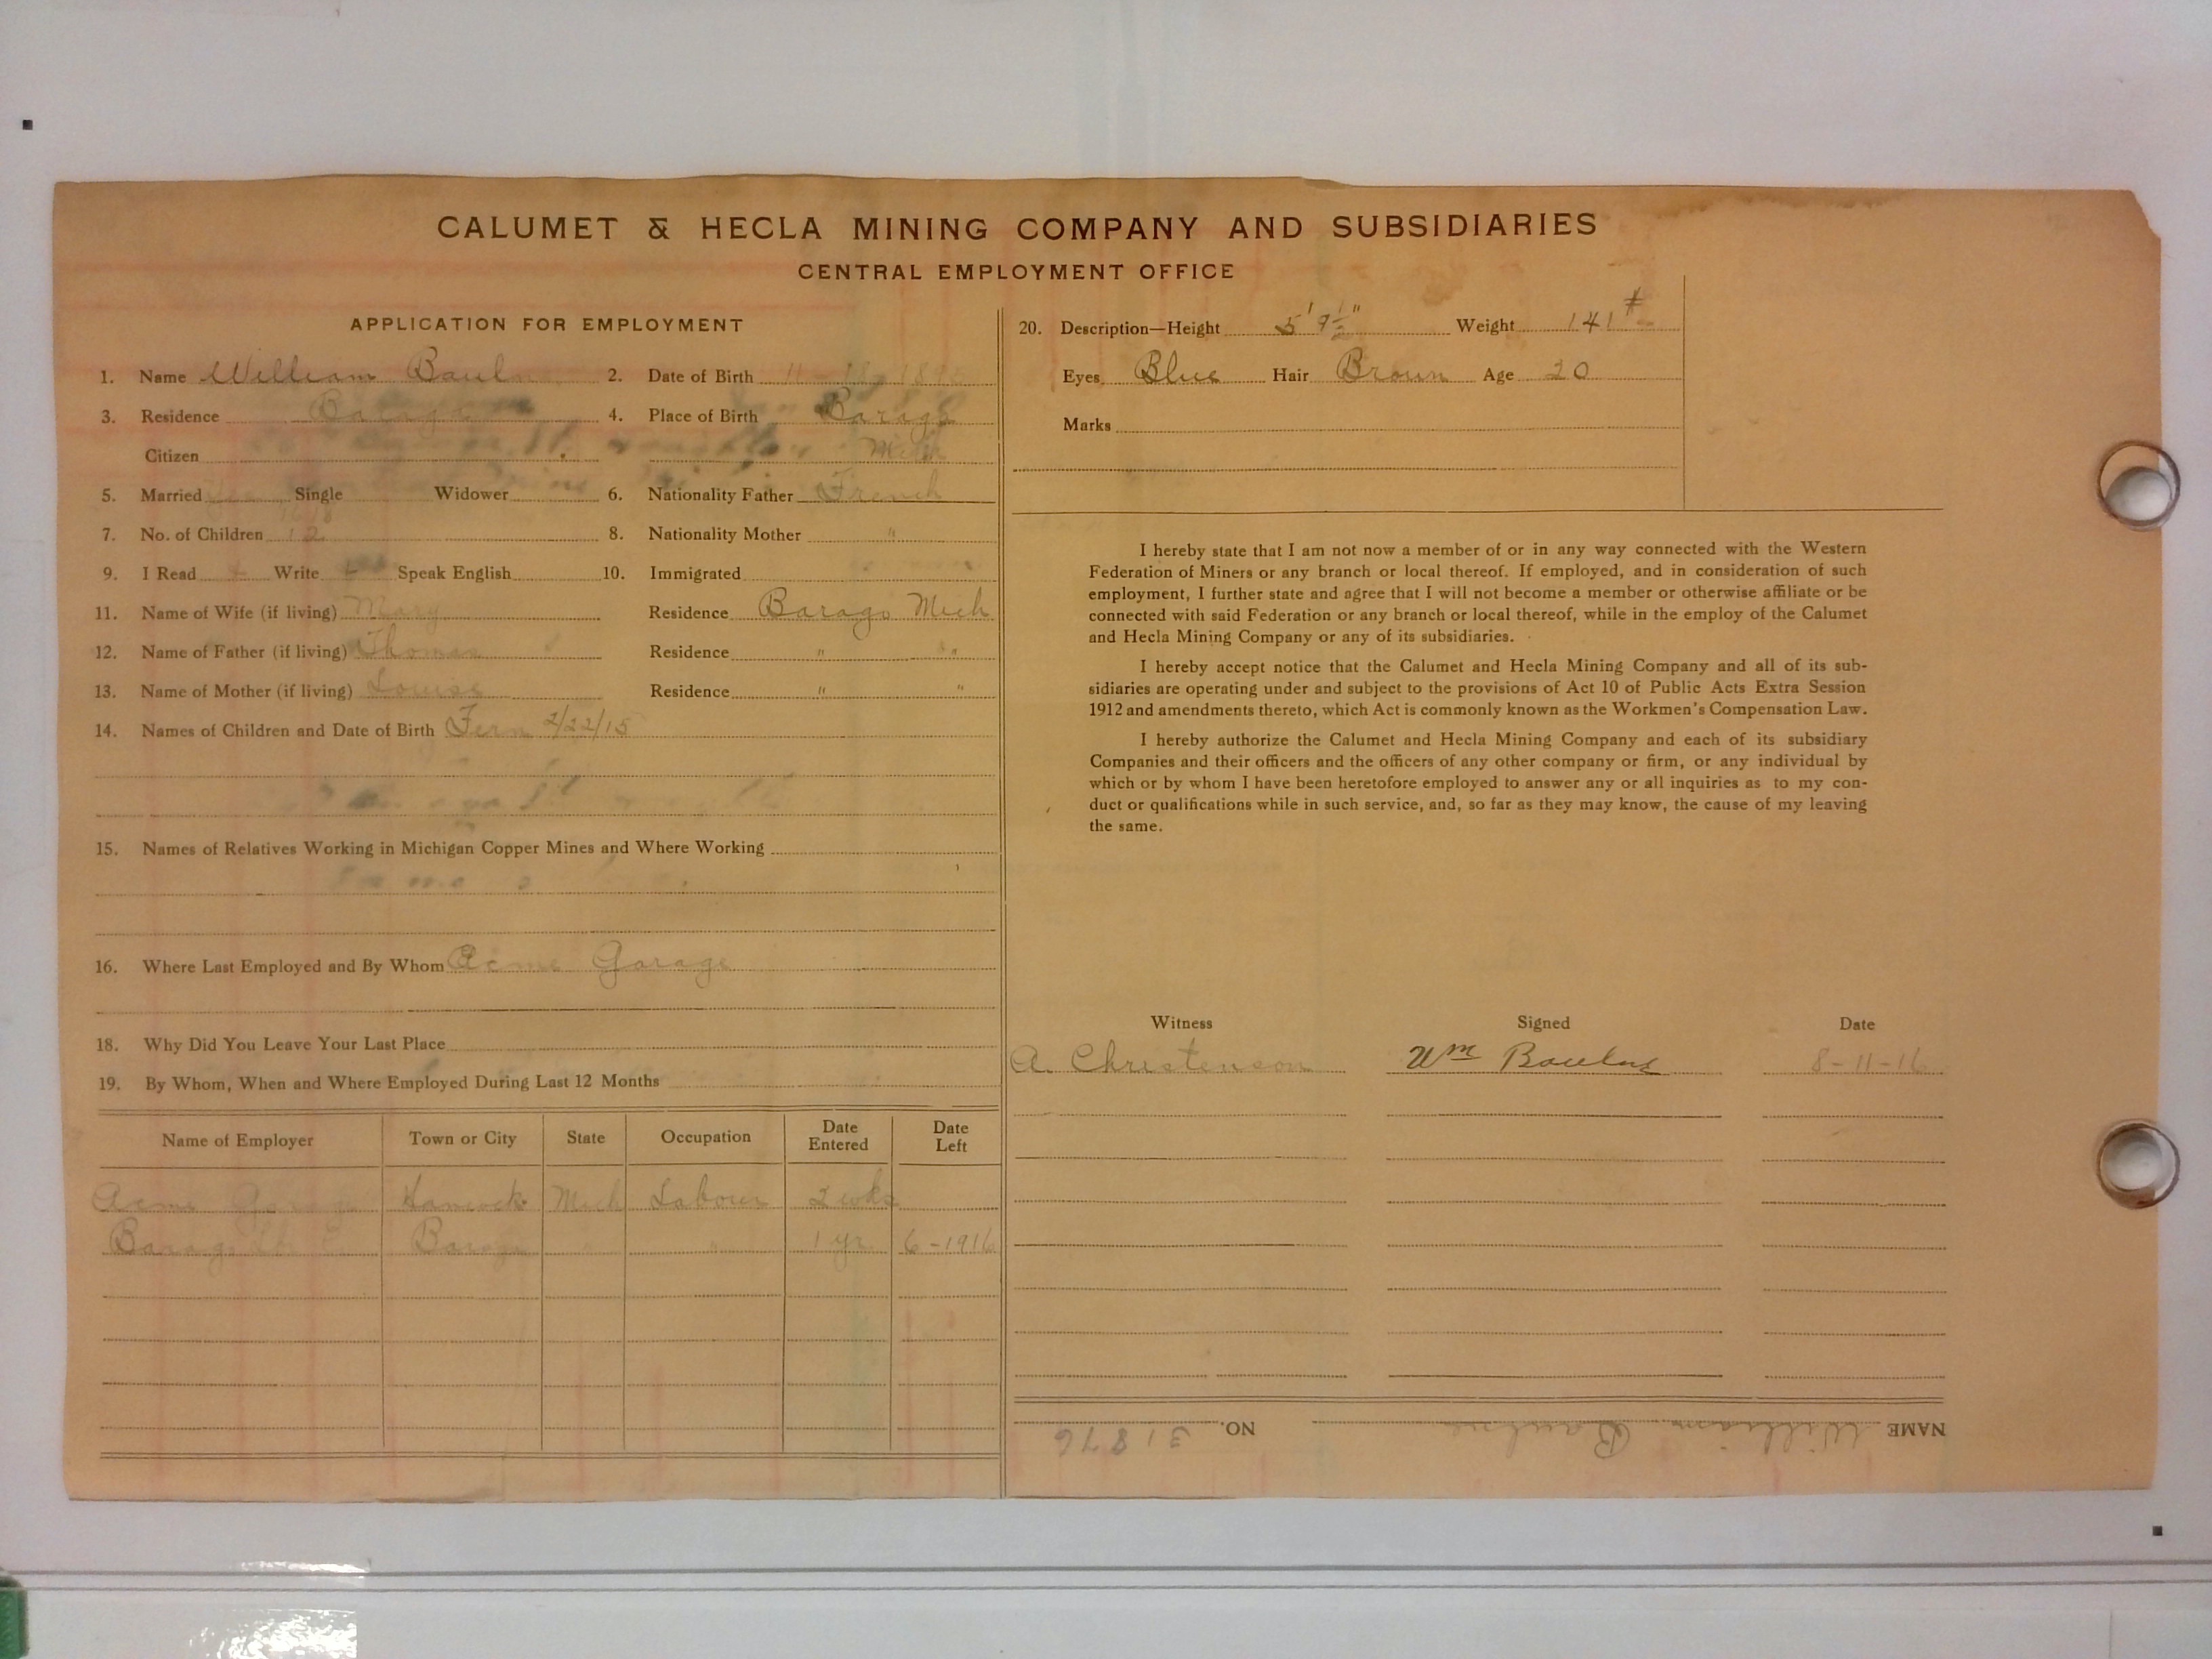 CALUMET & HECLA MINING COMPANY AND SUBSIDIARIES
CENTRAL EMPLOYMENT OFFICE
APPLICATION FOR EMPLOYMENT
1. Name William 2. Date of Birth 11
3. Residence Baraga 4. Place of Birth Baraga
Citizen Mich
5. Married Single Widower 6. Nationality Father French
7. No. of Children 8. Nationality Mother "
9. I Read + Write + Speak English 10. Immigrated
11. Name of Wife (if living) Mary Residence Baraga Mich
12. Name of Father (if living) Thomas Residence " "
13. Name of Mother (if living) Louise Residence " "
14. Names of Children and Date of Birth Fern 2/22/15
15. Names of Relatives Working in Michigan Copper Mines and Where Working
16. Where Last Employed and By Whom Acme Garage
18. Why Did You Leave Your Last Place
19. By Whom, When and Where Employed During Last 12 Months
Name of Employer Town or City State Occupation Date Entered Date Left
Acme Garage Hancock Mich Labourer 2 wks
Baraga Baraga " 1 yr. 6-1916
20. Description—Height 5' 9½" Weight 141#
Eyes Blue Hair Brown Age 20
Marks
I hereby state that I am not now a member of or in any way connected with the Western
Federation of Miners or any branch or local thereof. If employed, and in consideration of such
employment, I further state and agree that I will not become a member or otherwise affiliate or be
connected with said Federation or any branch or local thereof, while in the employ of the Calumet
and Hecla Mining Company or any of its subsidiaries.
I hereby accept notice that the Calumet and Hecla Mining Company and all of its sub-
sidiaries are operating under and subject to the provisions of Act 10 of Public Acts Extra Session
1912 and amendments thereto, which Act is commonly known as the Workmen's Compensation Law.
I hereby authorize the Calumet and Hecla Mining Company and each of its subsidiary
Companies and their officers and the officers of any other company or firm, or any individual by
which or by whom I have been heretofore employed to answer any or all inquiries as to my con-
duct or qualifications while in such service, and, so far as they may know, the cause of my leaving
the same.
Witness Signed Date
A. Christenson Wm 8-11-16
NAME William NO. 31876